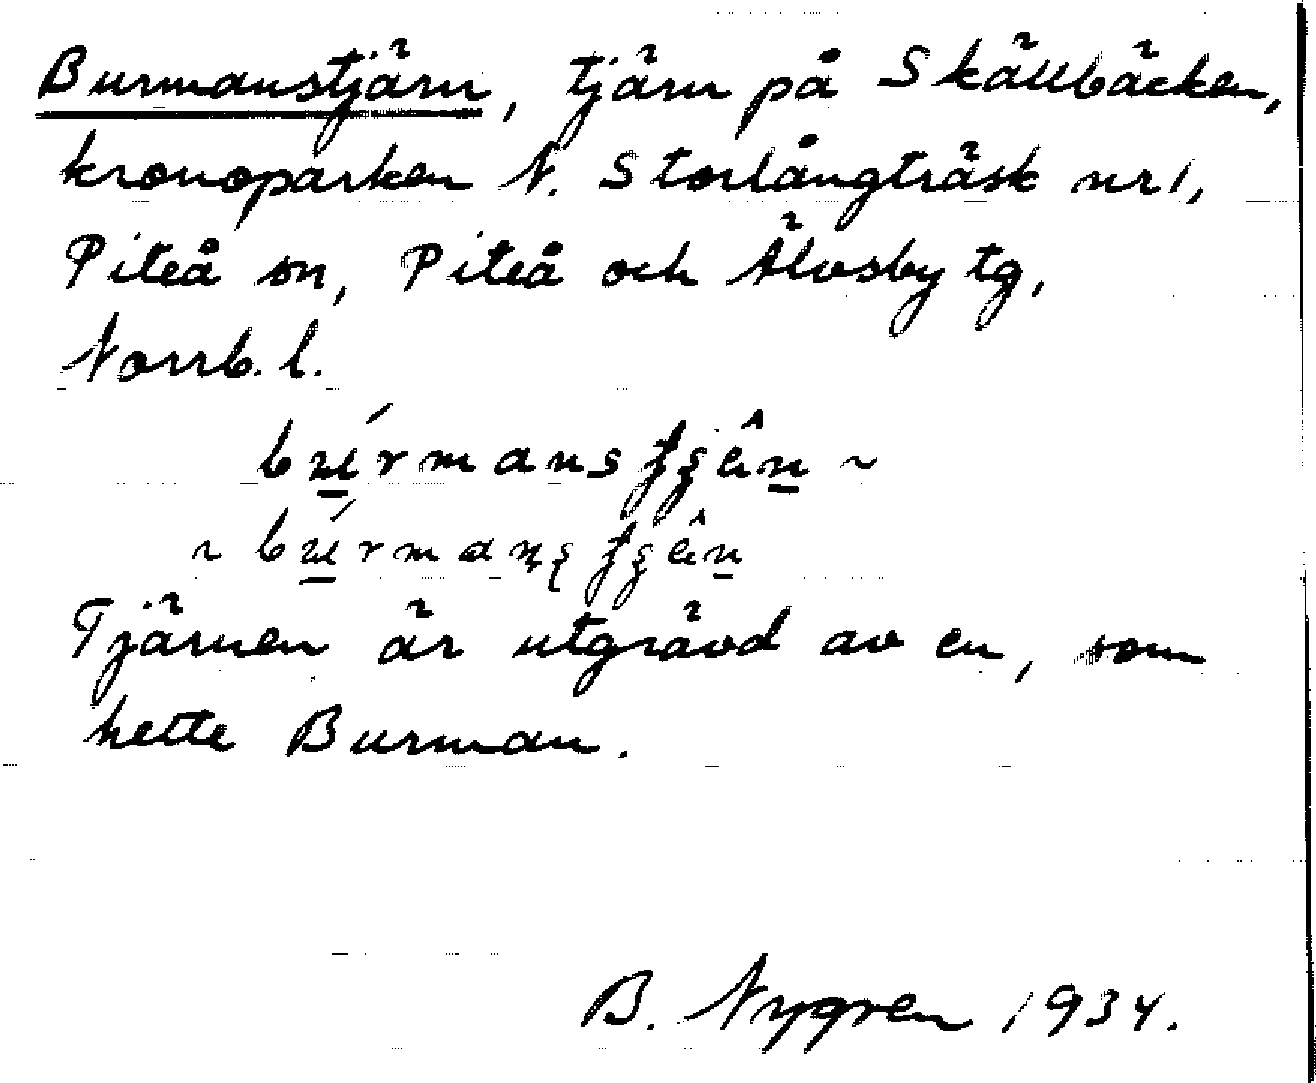 Burmanstjärn, tjärn på Skällbäcken,
kronoparken N. Storlångträsk nr 1,
Piteå sn, Piteå och Älvsby tg,
Norrb. l.
Tjärnen är utgrävd av en, som
hette Burman.
B. Nygren 1934.